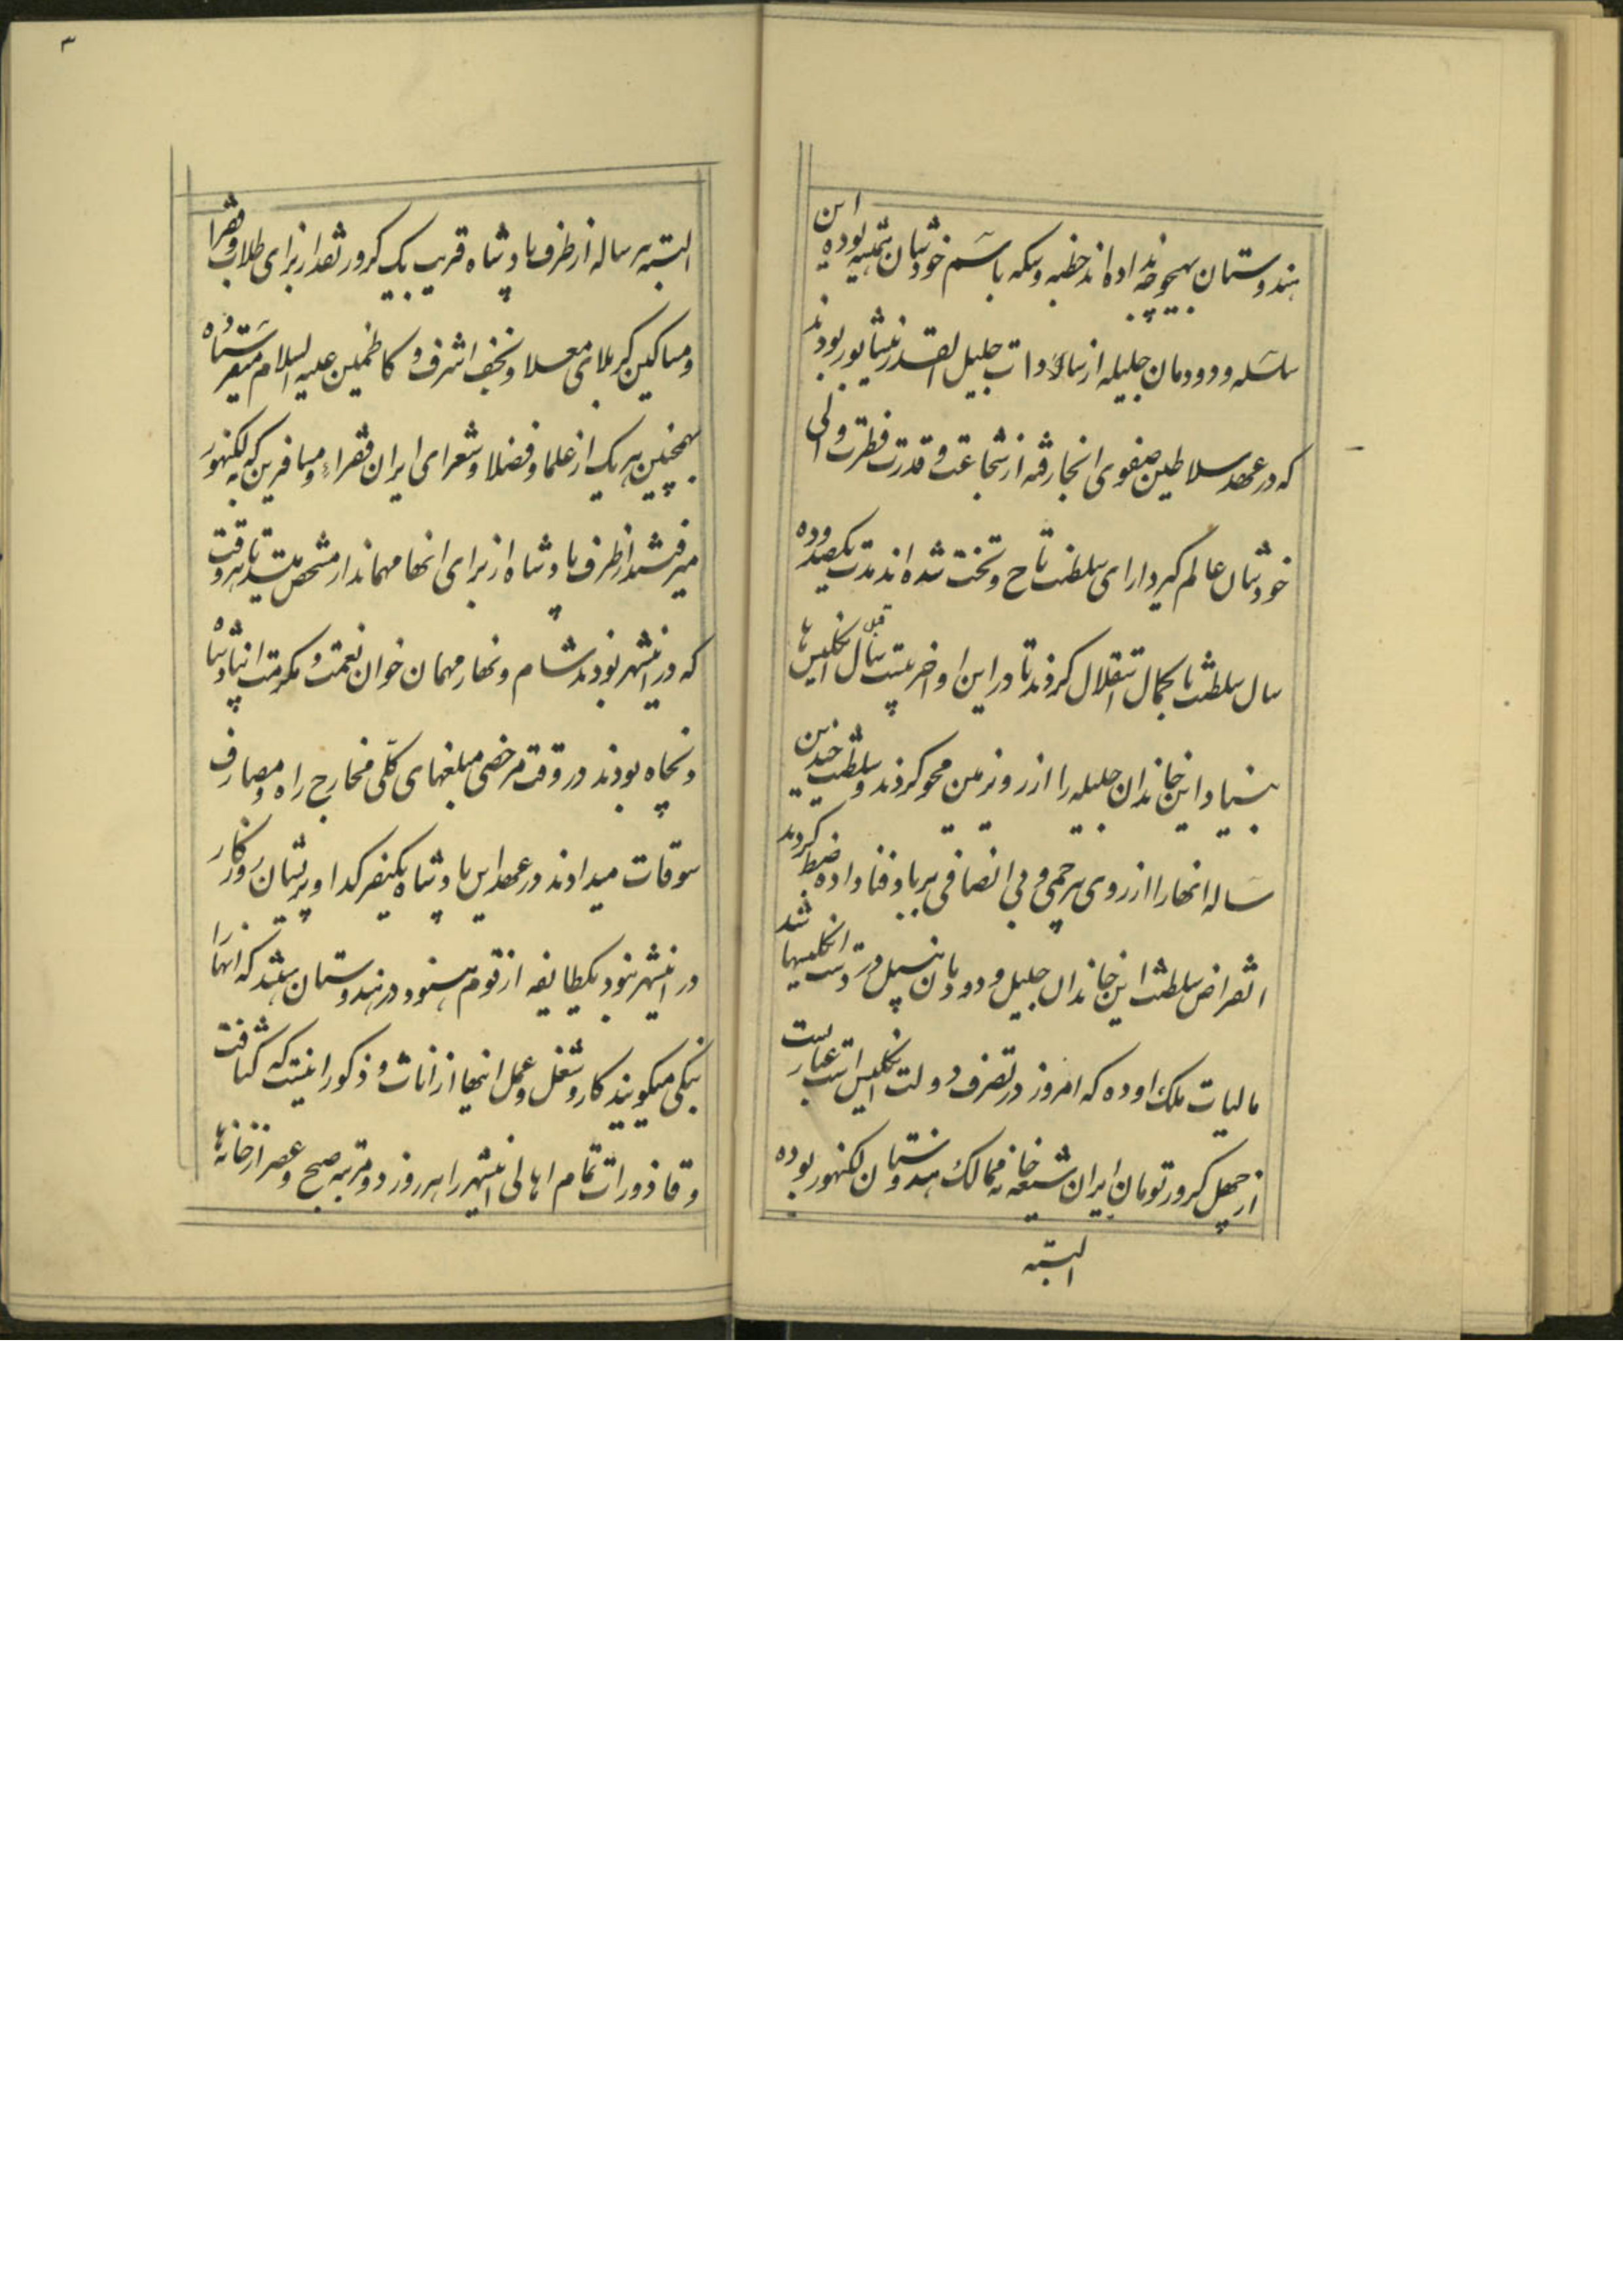 هندوستان بهیچوجه نداده‌اند خطبه و سکه باسم خودشان همیشه بوده این
سلسله و دودمان جلیله از سادات جلیل القدر نیشابور بودند
که در عهد سلاطین صفوی انجا رفته از شجاعت و قدرت فطرت ولی
خودشان عالم گیر دارای سلطنت تاج و تخت شده اند مدت یکصد و ده
سال سلطنت با کمال استقلال کردند تا در این اواخر بیست سال قبل انگلیس ها
بنیاد این خاندان جلیله را از روی زمین محو کردند و سلطنت چندین
ساله انها را از روی بیرحمی و بی انصافی برباد فنا داده ضبط کردند
انقراض سلطنت این خاندان جلیل و دودمان در دست انگلیسها شد
مالیات ملک اوده که امروز در تصرف دولت انگلیس است عبارتست
از چهل کرور تومان ایران شیعه خانه ممالک هندوستان لکنهور بوده
البته
۳
البته هر ساله از طرف پادشاه قریب یک کرور نقد از برای طلاب و فقرا
و مساکین کربلای معلا و نجف اشرف و کاظمین علیه السلام میفرستاده
همچنین هر یک از علما و فضلا و شعرای ایران فقراء و مسافرین که به لکنهور
میرفتند از طرف پادشاه از برای انها مهماندار مشخص میشد تا هر وقت
که در انشهر بودند شام و نهار مهمان خوان نعمت و مکرمت انپادشاه
و نجاه بودند در وقت مرخصی مبلغهای کلی مخارج راه و مصارف
سوقات میدادند در عهد این پادشاه یکنفر گدا و پریشان روزگار
در انشهر نبود یکطایفه از قوم هنود در هندوستان هستند که انها را
بنگی میگویند کار و شغل و عمل اینها از اناث و ذکور اینست که کثافت
و قاذورات تمام اهالی انشهر را هر روز دو مرتبه صبح و عصر از خانه ها